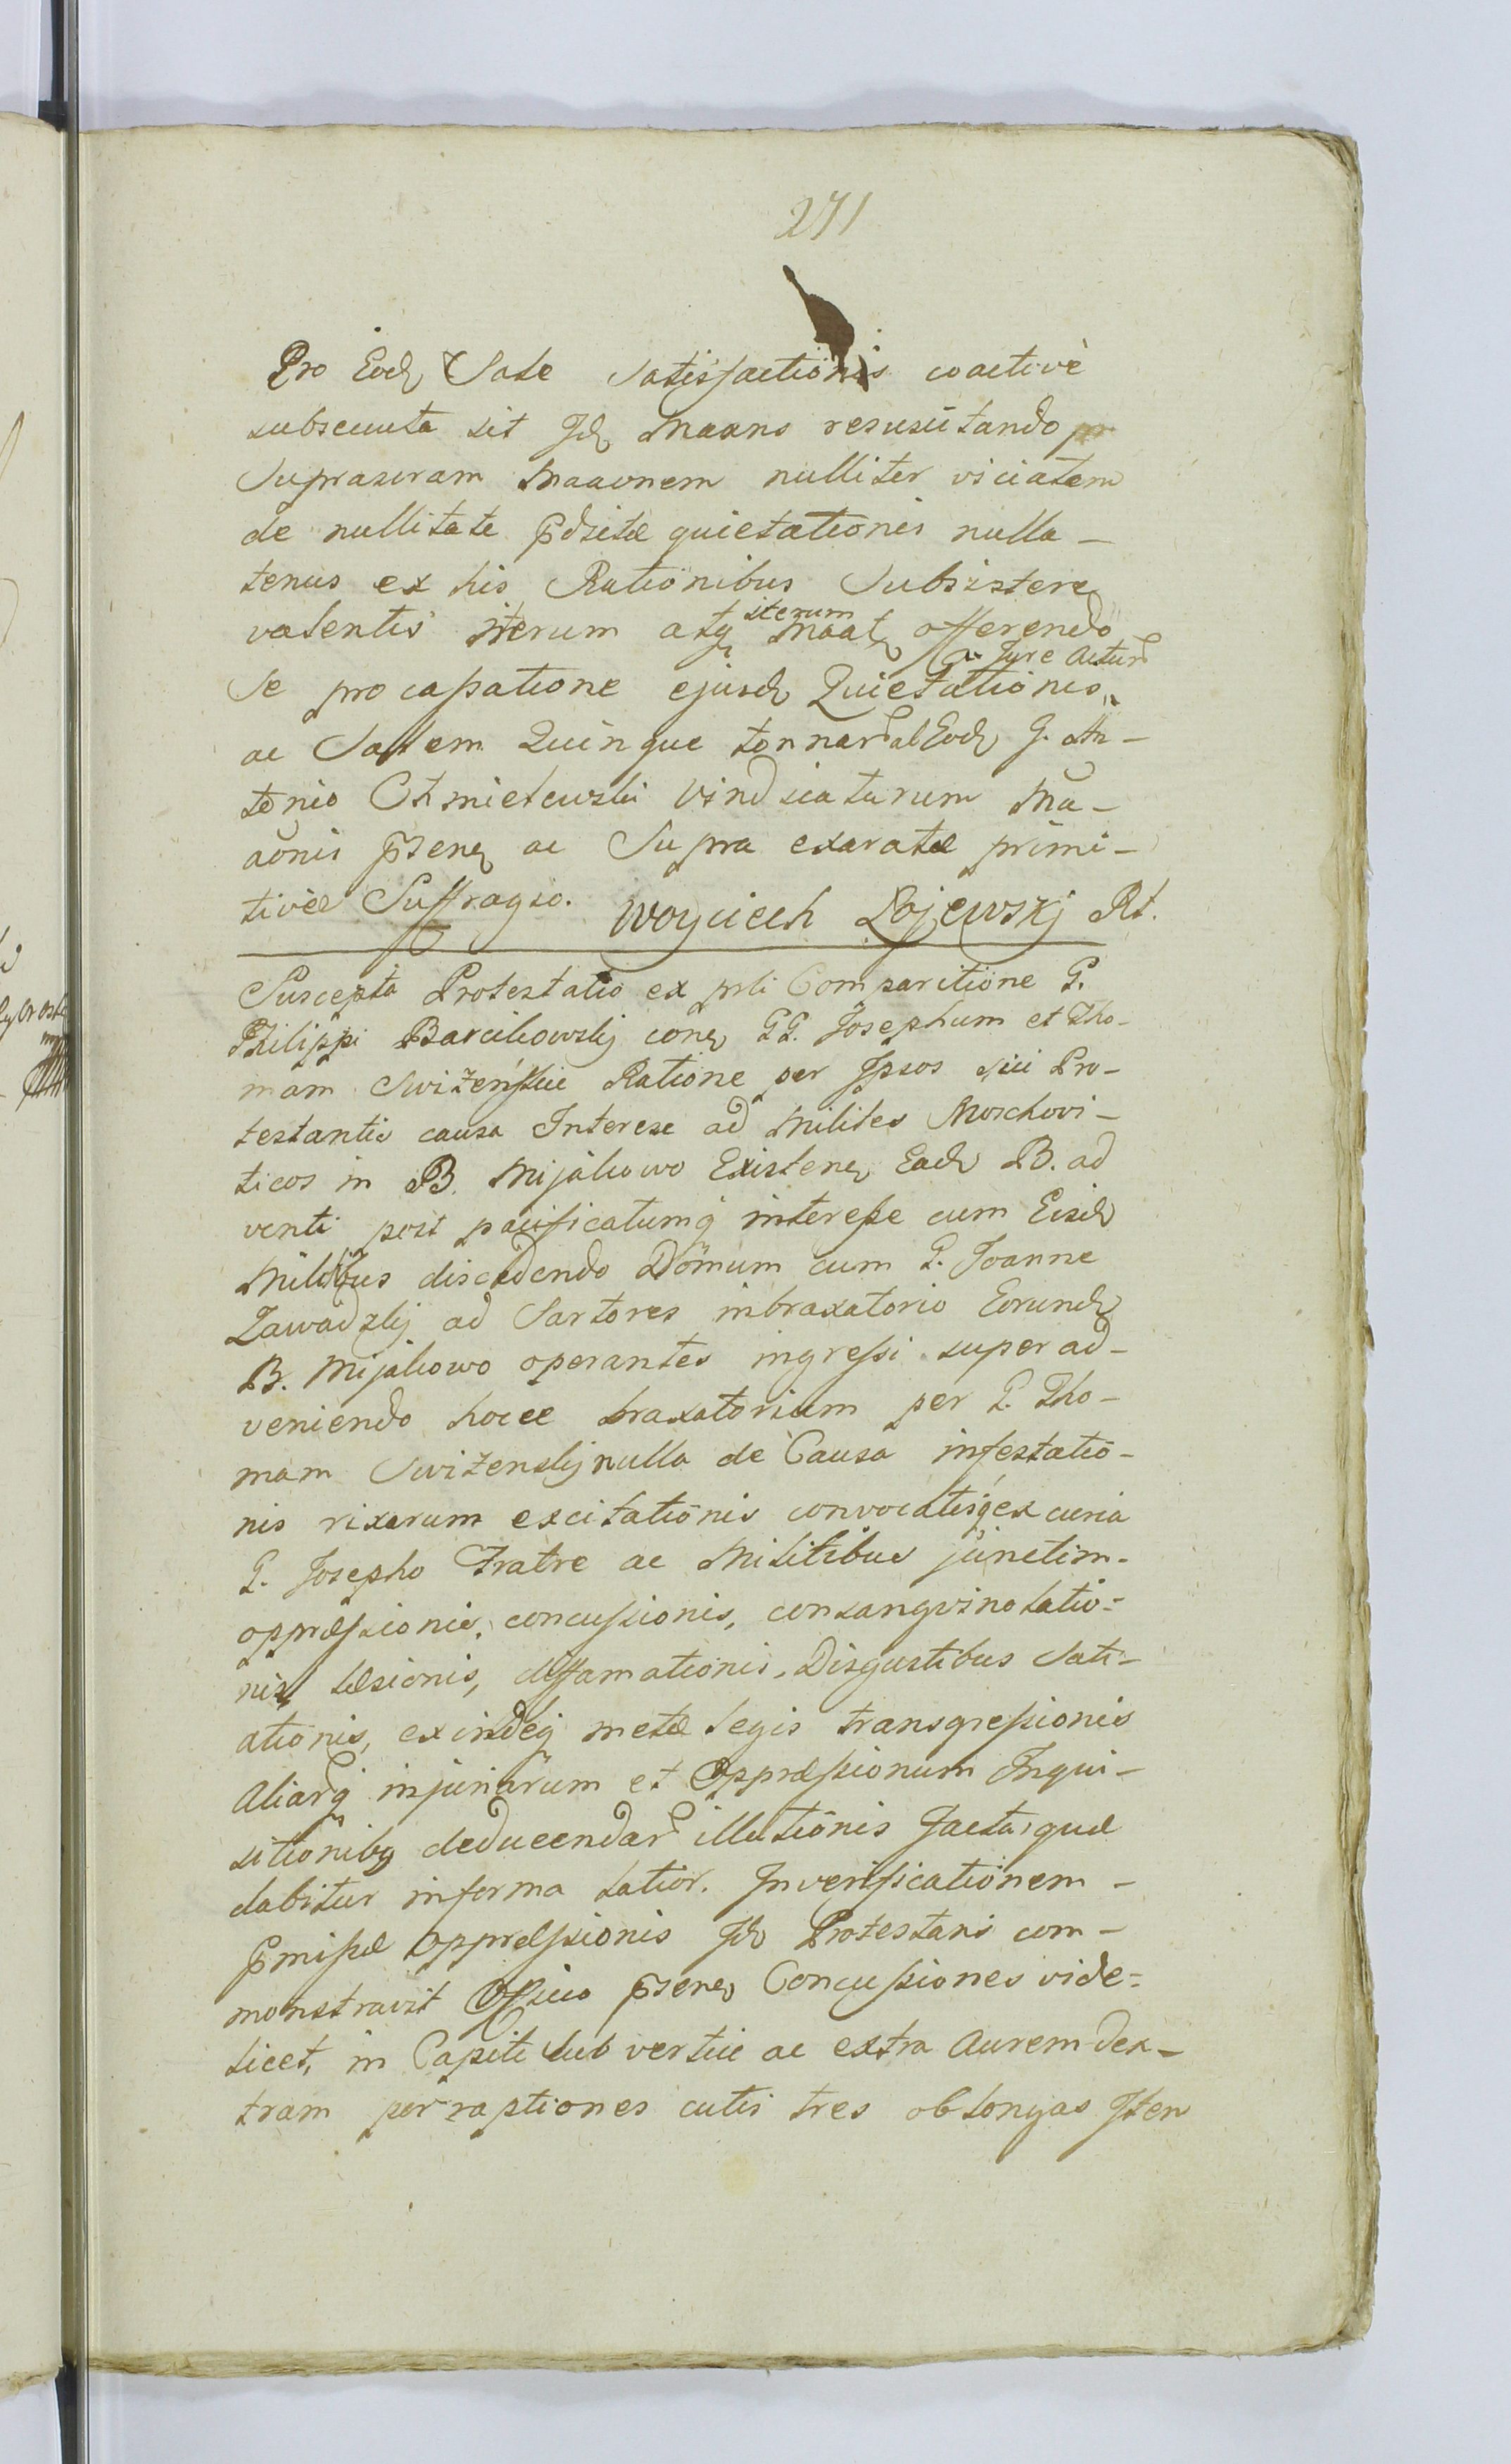 271
Pro Eod Sale satisfactionis coactivè
subsecuta sit Jd Maans resuscitando
Suprascram Maaonem nulliter viciatem
de nullitate pdsitæ quietationis nulla-
tenus ex his Rationibus Subsistere
valentis iterum atq iterum Maat offerendo
Se pro cassatione ejusd Quietationis a Jure Actur
ac Salem Quinque tonnar ab Eod G. An-
tonio Chmielewski Vindicaturum Ma-
aonis psene ac Supra exaratæ primi-
tivæ Suffragio. Woyciech Łojewskj Rt.
Suscepta Protestatio ex psli Comparitione G.
Philippi Barcikowskj cone GG. Josephum et Tho-
mam Swizeńskie Ratione per Ipsos sui Pro-
testantis causa Interese ad Milites Moschovi-
ticos in B. Mijakowo Existene Ead B. ad
venti post pacificatumq interesse cum Eisd
Militibus discedendo Domum cum G. Joanne
Zawadzkj ad Sartores inbraxatorio Eorund
B. Mijakowo operantes ingressi superad-
veniendo hocce braxatorium per G. Tho-
mam Swizenskj nulla de Causa infestatio-
nis rixarum excitationis convocatisq ex curia
G. Josepho Fratre ac Militibus junctim-
oppræssionis, concussionis, consangvinolatio-
nis, læsionis, deffamationis, Disgustibus Sati-
ationis, exindeq metæ legis transgressionis
Aliarq injuriarum et Oppræssionum Inqui-
sitionibq deducendar illationis facta, quæ
dabitur informa latior. Inverificationem-
pmissæ oppræssionis Jd Protestans com-
monstravit Officio psene Concussiones vide-
licet, in Capite Sub vertice ac extra Aurem dex-
tram perraptiones cutis tres oblongas Item